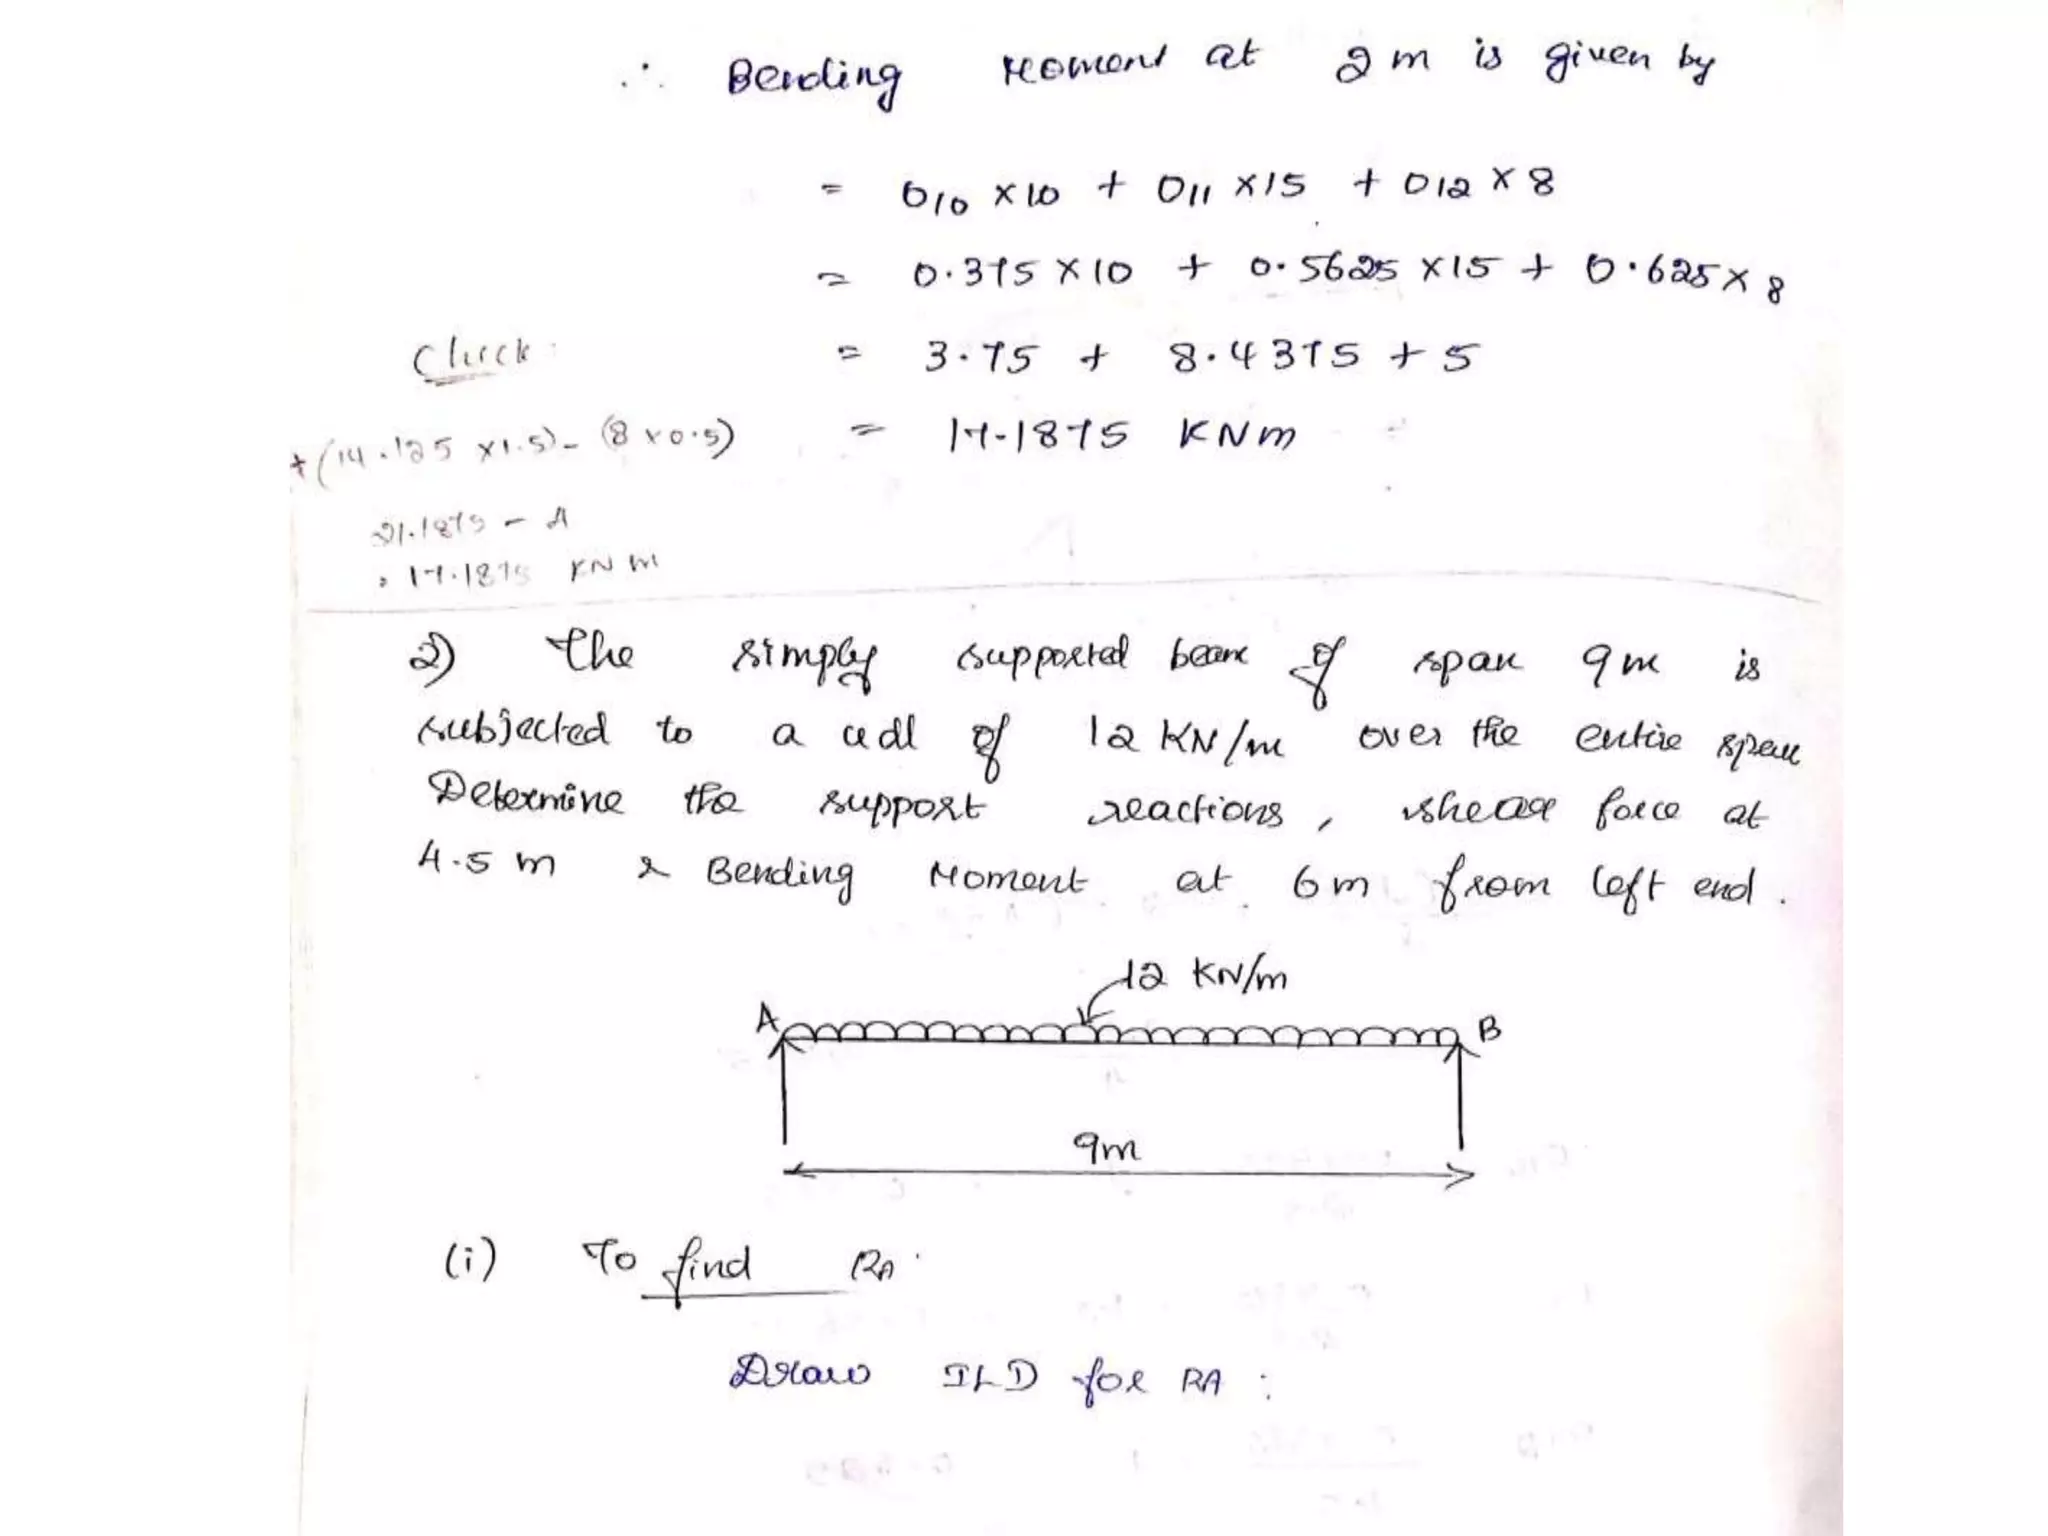 ∴ Bending Moment at 2 m is given by
= O10 × 10 + O11 × 15 + O12 × 8
= 0.375 × 10 + 0.5625 × 15 + 0.625 × 8
Check:
= 3.75 + 8.4375 + 5
+(14.125 × 1.5) - (8 × 0.5)
= 17.1875 KNm
21.1875 - 4
= 17.1875 KN m
2) The simply supported beam of span 9m is
subjected to a udl of 12 KN/m over the entire span
Determine the support reactions, shear force at
4.5 m & Bending Moment at 6m from left end.
12 KN/m
A
B
9m
(i) To find RA.
Draw ILD for RA :